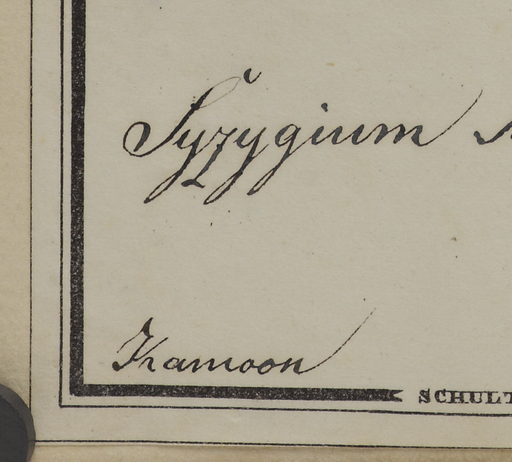 Syzygium
Kamoon
SCHULT